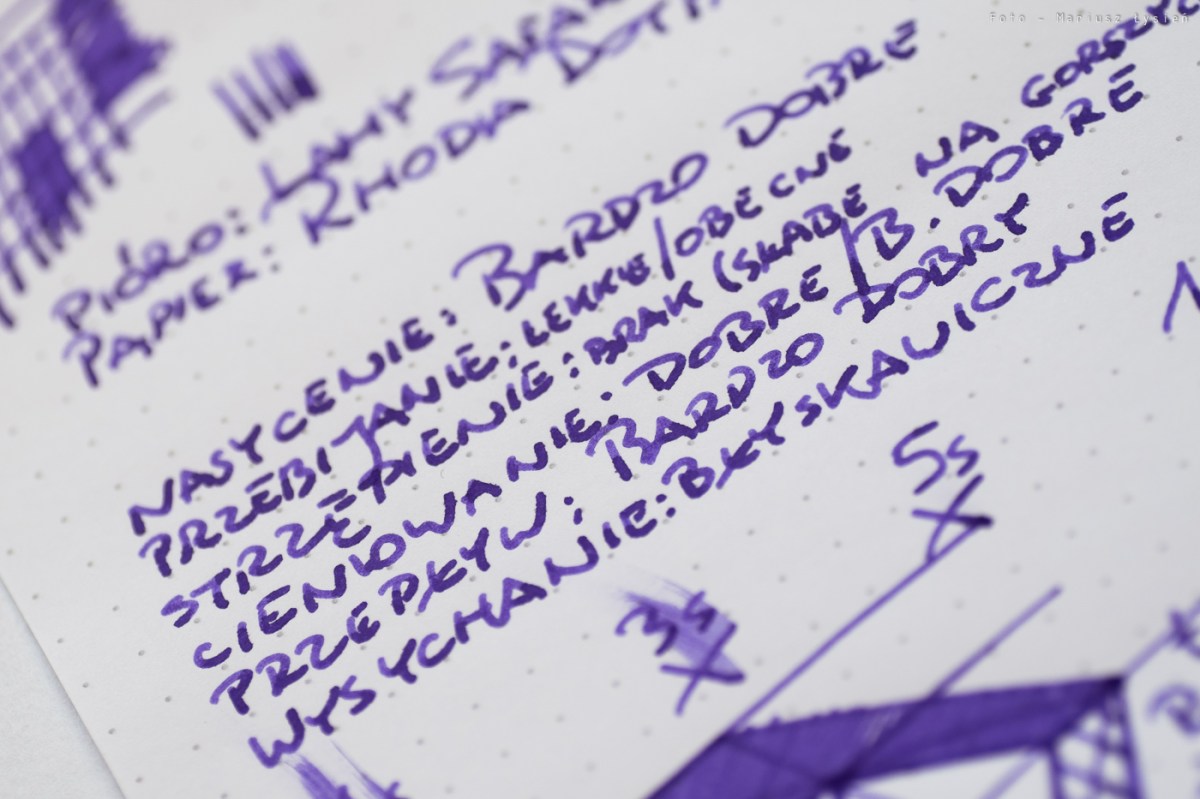 Foto - Mariusz Łysień
PIÓRO: LAMY SAFARI
PAPIER: RHODIA DOT
NASYCENIE: BARDZO DOBRE
PRZEBIJANIE: LEKKIE/OBECNE
STRZĘPIENIE: BRAK (SŁABE NA GORSZYCH
CIENIOWANIE: DOBRE/B. DOBRE
PRZEPŁYW: BARDZO DOBRY
WYSYCHANIE: BŁYSKAWICZNE
5s
3s